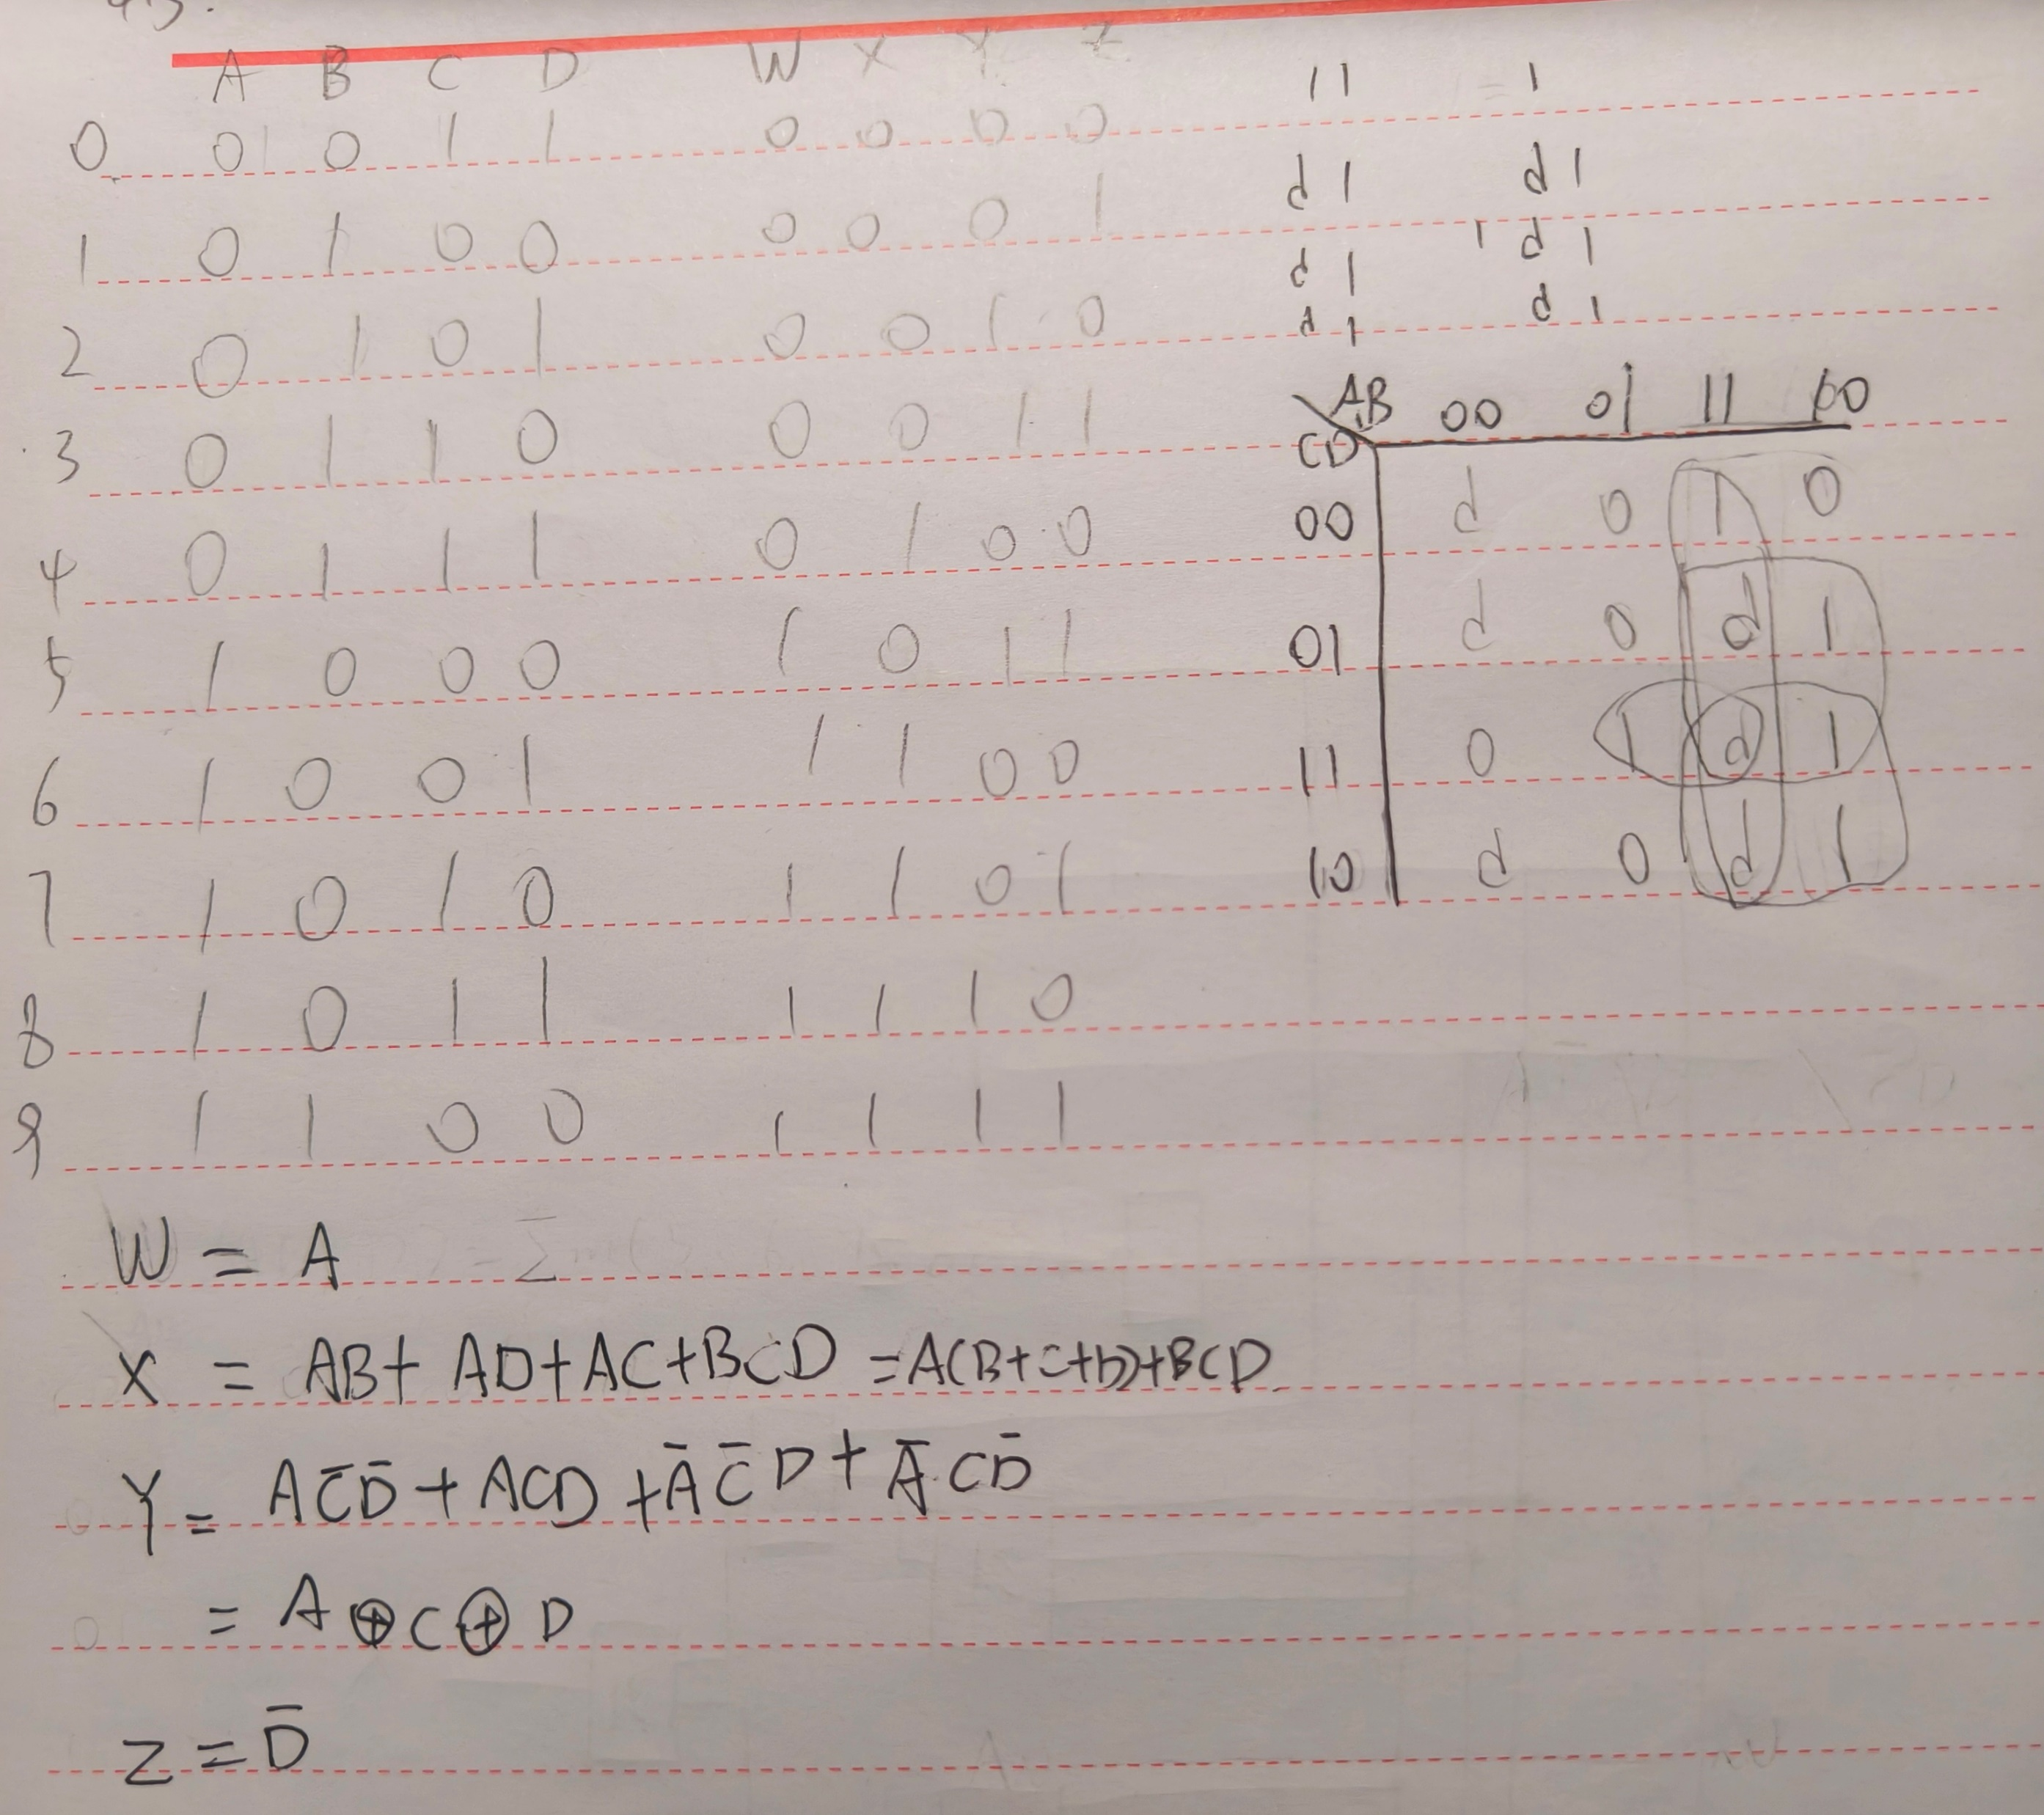 A B C D W X Y Z
0 0 0 1 1 0 0 0 0
1 0 1 0 0 0 0 0 1
2 0 1 0 1 0 0 1 0
3 0 1 1 0 0 0 1 1
4 0 1 1 1 0 1 0 0
5 1 0 0 0 1 0 1 1
6 1 0 0 1 1 1 0 0
7 1 0 1 0 1 1 0 1
8 1 0 1 1 1 1 1 0
9 1 1 0 0 1 1 1 1
11 = 1
d1 d1
d1 1 d1
d1 d1
AB 00 01 11 10
CD
00 d 0 1 0
01 d 0 d 1
11 0 1 d 1
10 d 0 d 1
W = A
X = AB+ AD+AC+BCD =A(B+C+D)+BCD
Y = AC̄D̄ + ACD + ĀC̄D + ĀCD̄
= A ⊕ C ⊕ D
Z = D̄